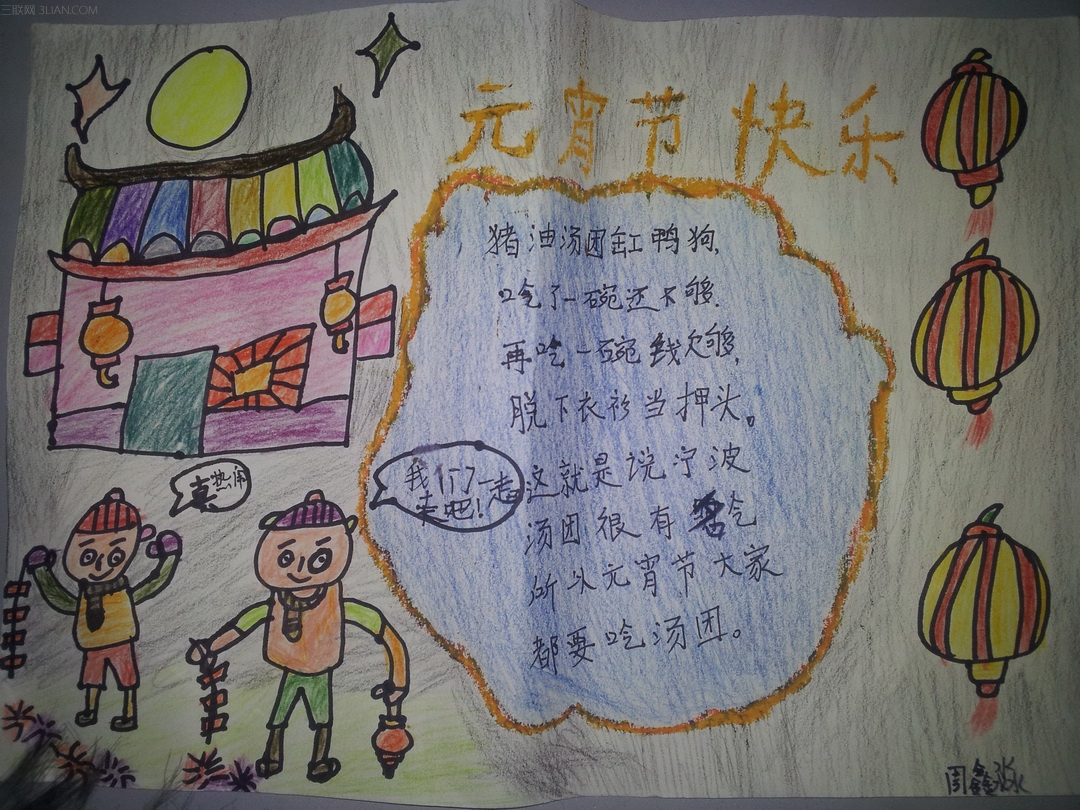 三联网 3LIAN.COM
元宵节快乐
猪油汤团缸鸭狗,
吃了一碗还不够.
再吃一碗钱欠够,
脱下衣衫当押头。
这就是说宁波
汤团很有名气
所以元宵节大家
都要吃汤团。
我们一起
去吧!
真热闹
周鑫淼